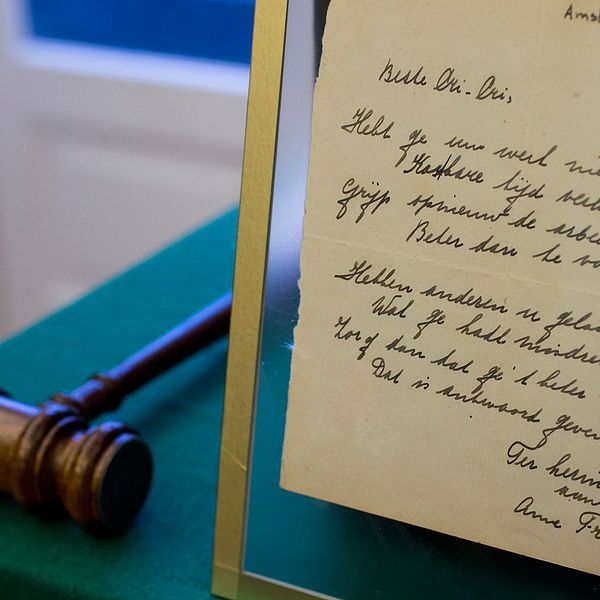 Amst
Beste Cri-Cri,
Hebt ge uw werk nie
Kostbare tijd verl
Grijp opnieuw de arbei
Beter dan te vo
Hebben anderen u gelaa
Wat ge hadt misdre
Zorg dan dat ge 't beter
Dat is antwoord geven
Ter herin
aan
Anne Fr